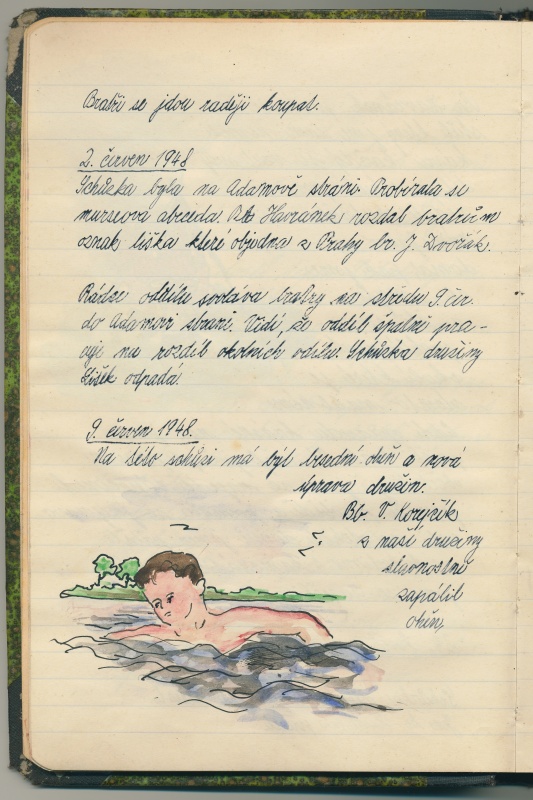 Bratři se jdou raději koupat.
2. červen 1948
Schůzka byla na Adamově stráni. Probírala se
murseova abeceda. Br. Havránek rozdal bratrům
oznak liška které objedna z Prahy br. J. Dvořák.
Rádce oddílu svolává bratry na středu 9. čer.
do Adamovi stráně. Vidí, že oddíl špatně pra-
cuje na rozdíl okolních oddílu. Schůzka družiny
Lišek odpadá.
9. červen 1948.
Na této schůzi má být besední oheň a nová
úprava družin.
Bb. V. Korejzík
z naší družiny
slavnostně
zapálil
oheň,